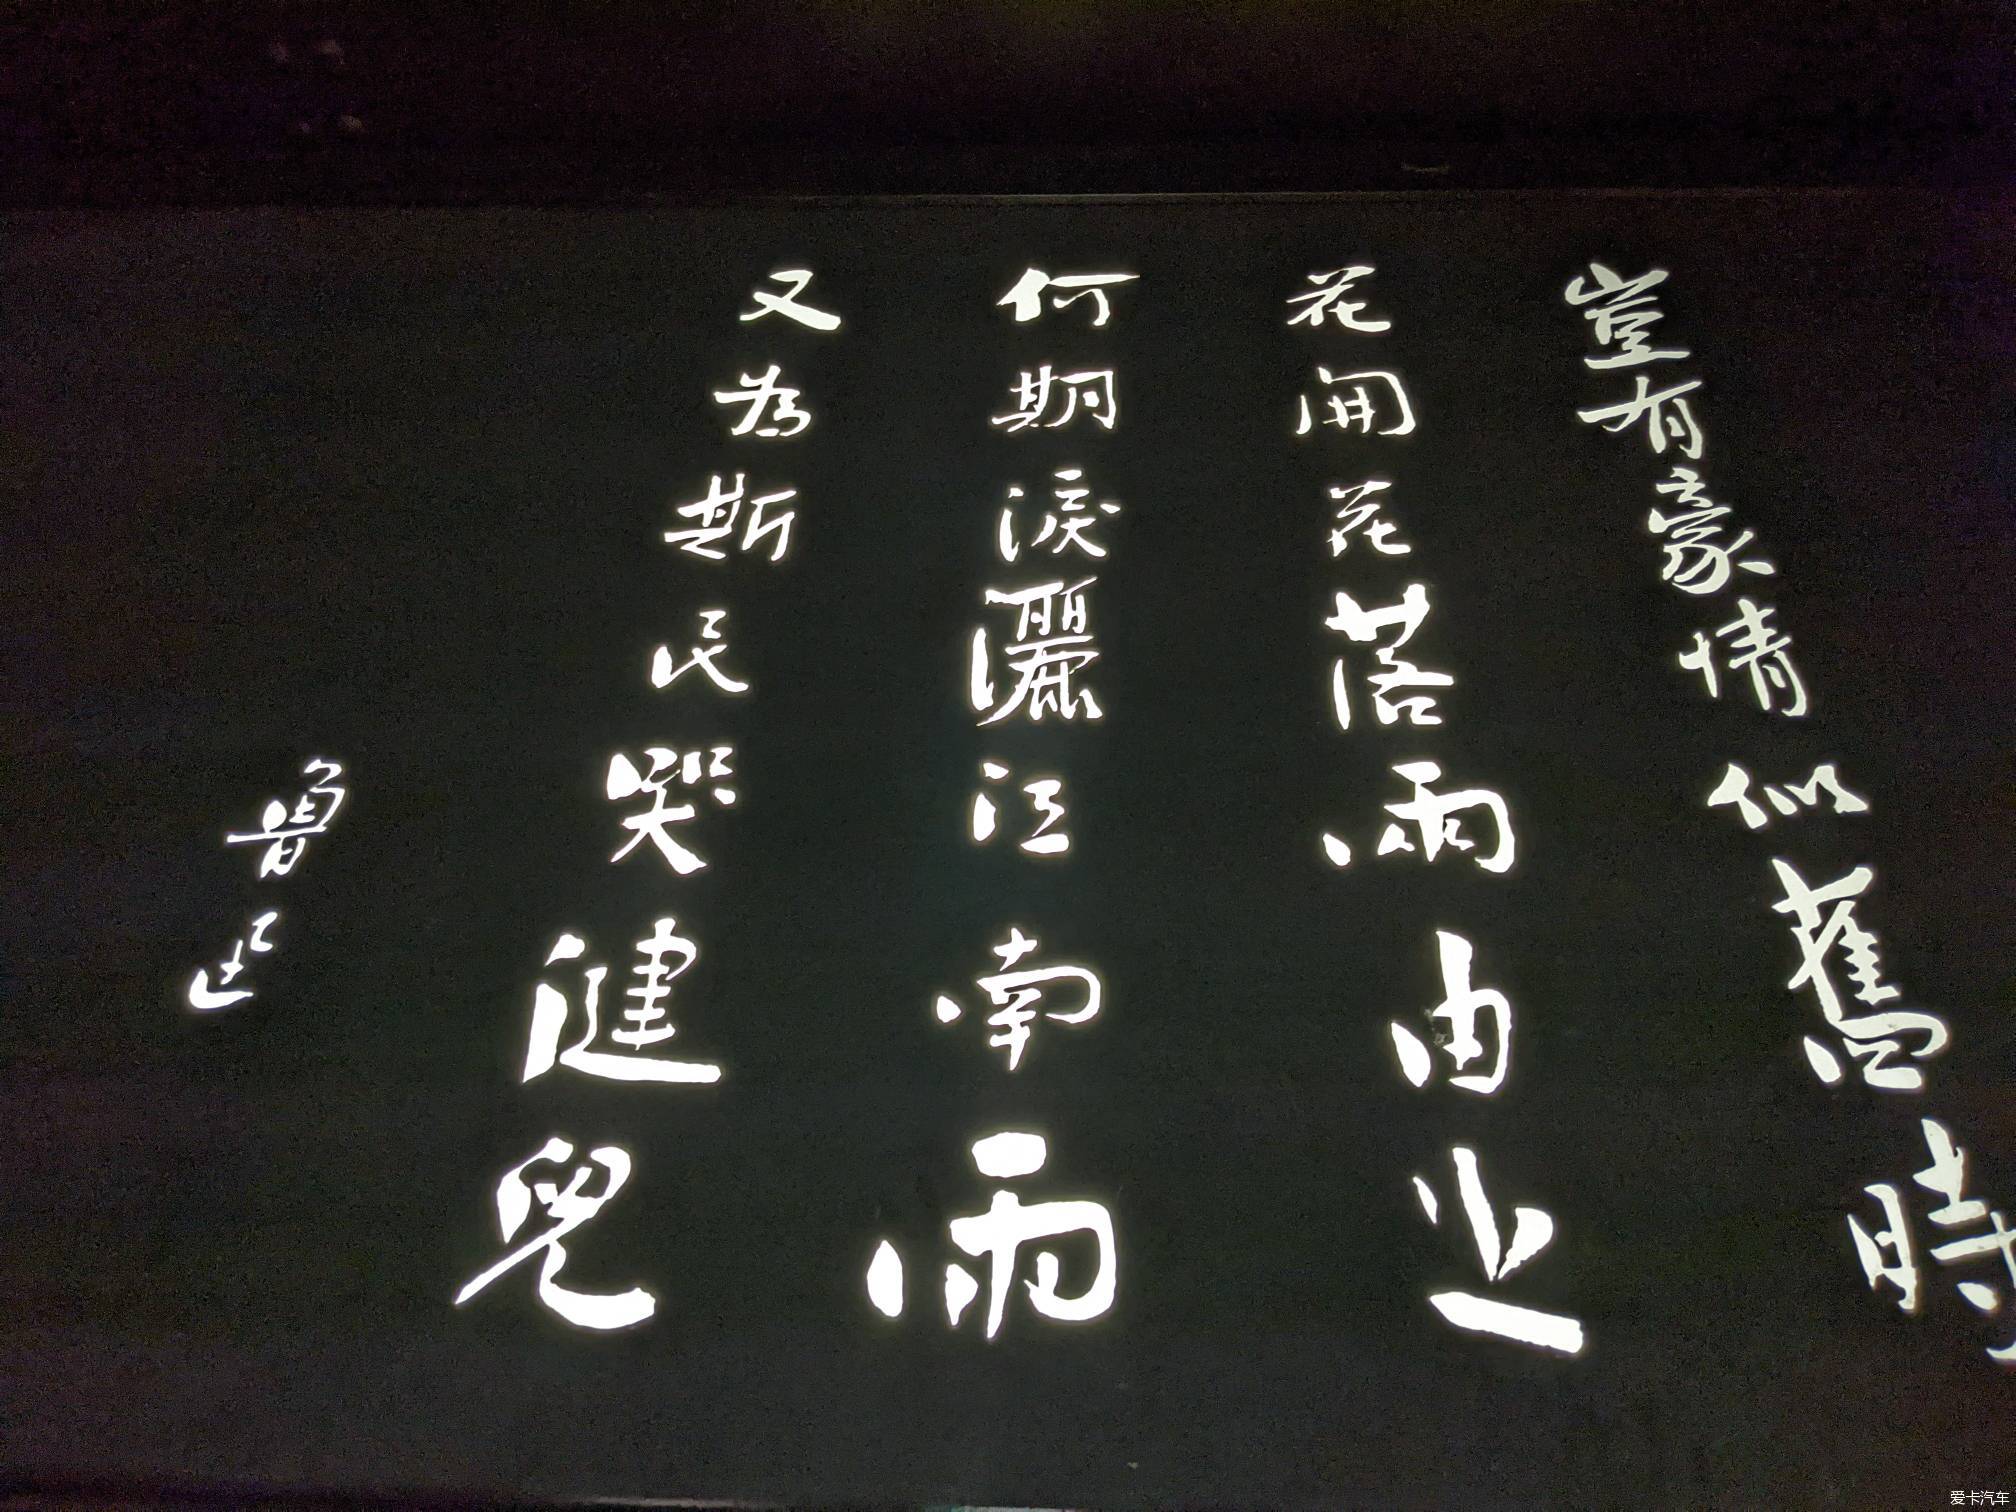 豈有豪情似舊時
花開花落兩由之
何期淚灑江南雨
又為斯民哭健兒
魯迅
爱卡汽车